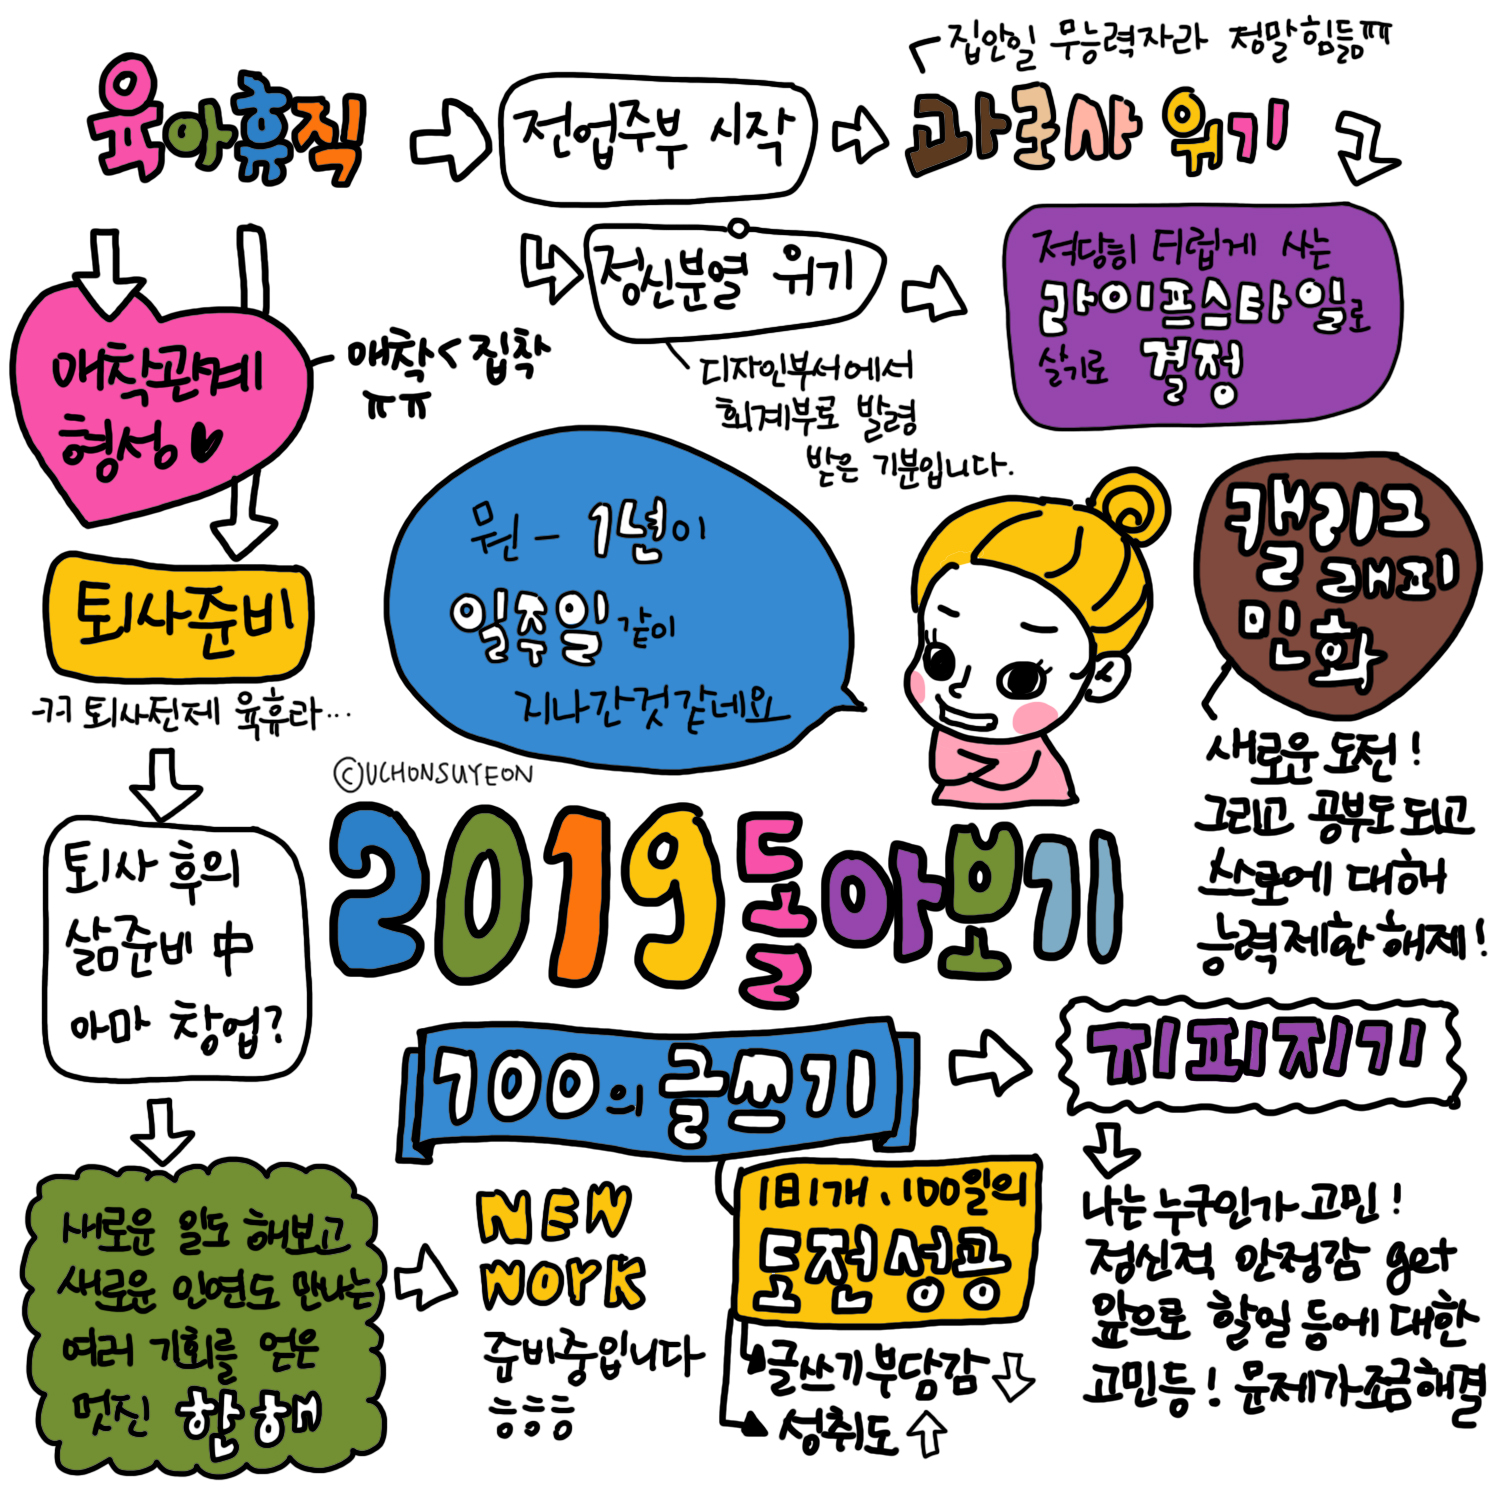 집안일 무능력자라 정말힘듦ㅠㅠ
육아휴직
전업주부 시작
과로사 위기
정신분열 위기
디자인부서에서
회계부로 발령
받은 기분입니다.
적당히 더럽게 사는
라이프스타일로
살기로 결정
애착관계
형성
애착<집착
ㅠㅠ
퇴사준비
ㄲㄲ 퇴사전제 육휴라...
퇴사 후의
삶준비 中
아마 창업?
새로운 일도 해보고
새로운 인연도 만나는
여러 기회를 얻은
멋진 한해
NEW
WORK
준비중입니다
ㅎㅎㅎ
뭔 - 1년이
일주일 같이
지나간것같네요
©UCHONSUYEON
2019 돌아보기
캘리그
래피
민화
새로운 도전!
그리고 공부도 되고
스스로에 대해
능력제한 해제!
100의 글쓰기
1日1개, 100일의
도전성공
글쓰기부담감
성취도
지피지기
나는 누구인가 고민!
정신적 안정감 get
앞으로 할일 등에 대한
고민등! 문제가조금해결